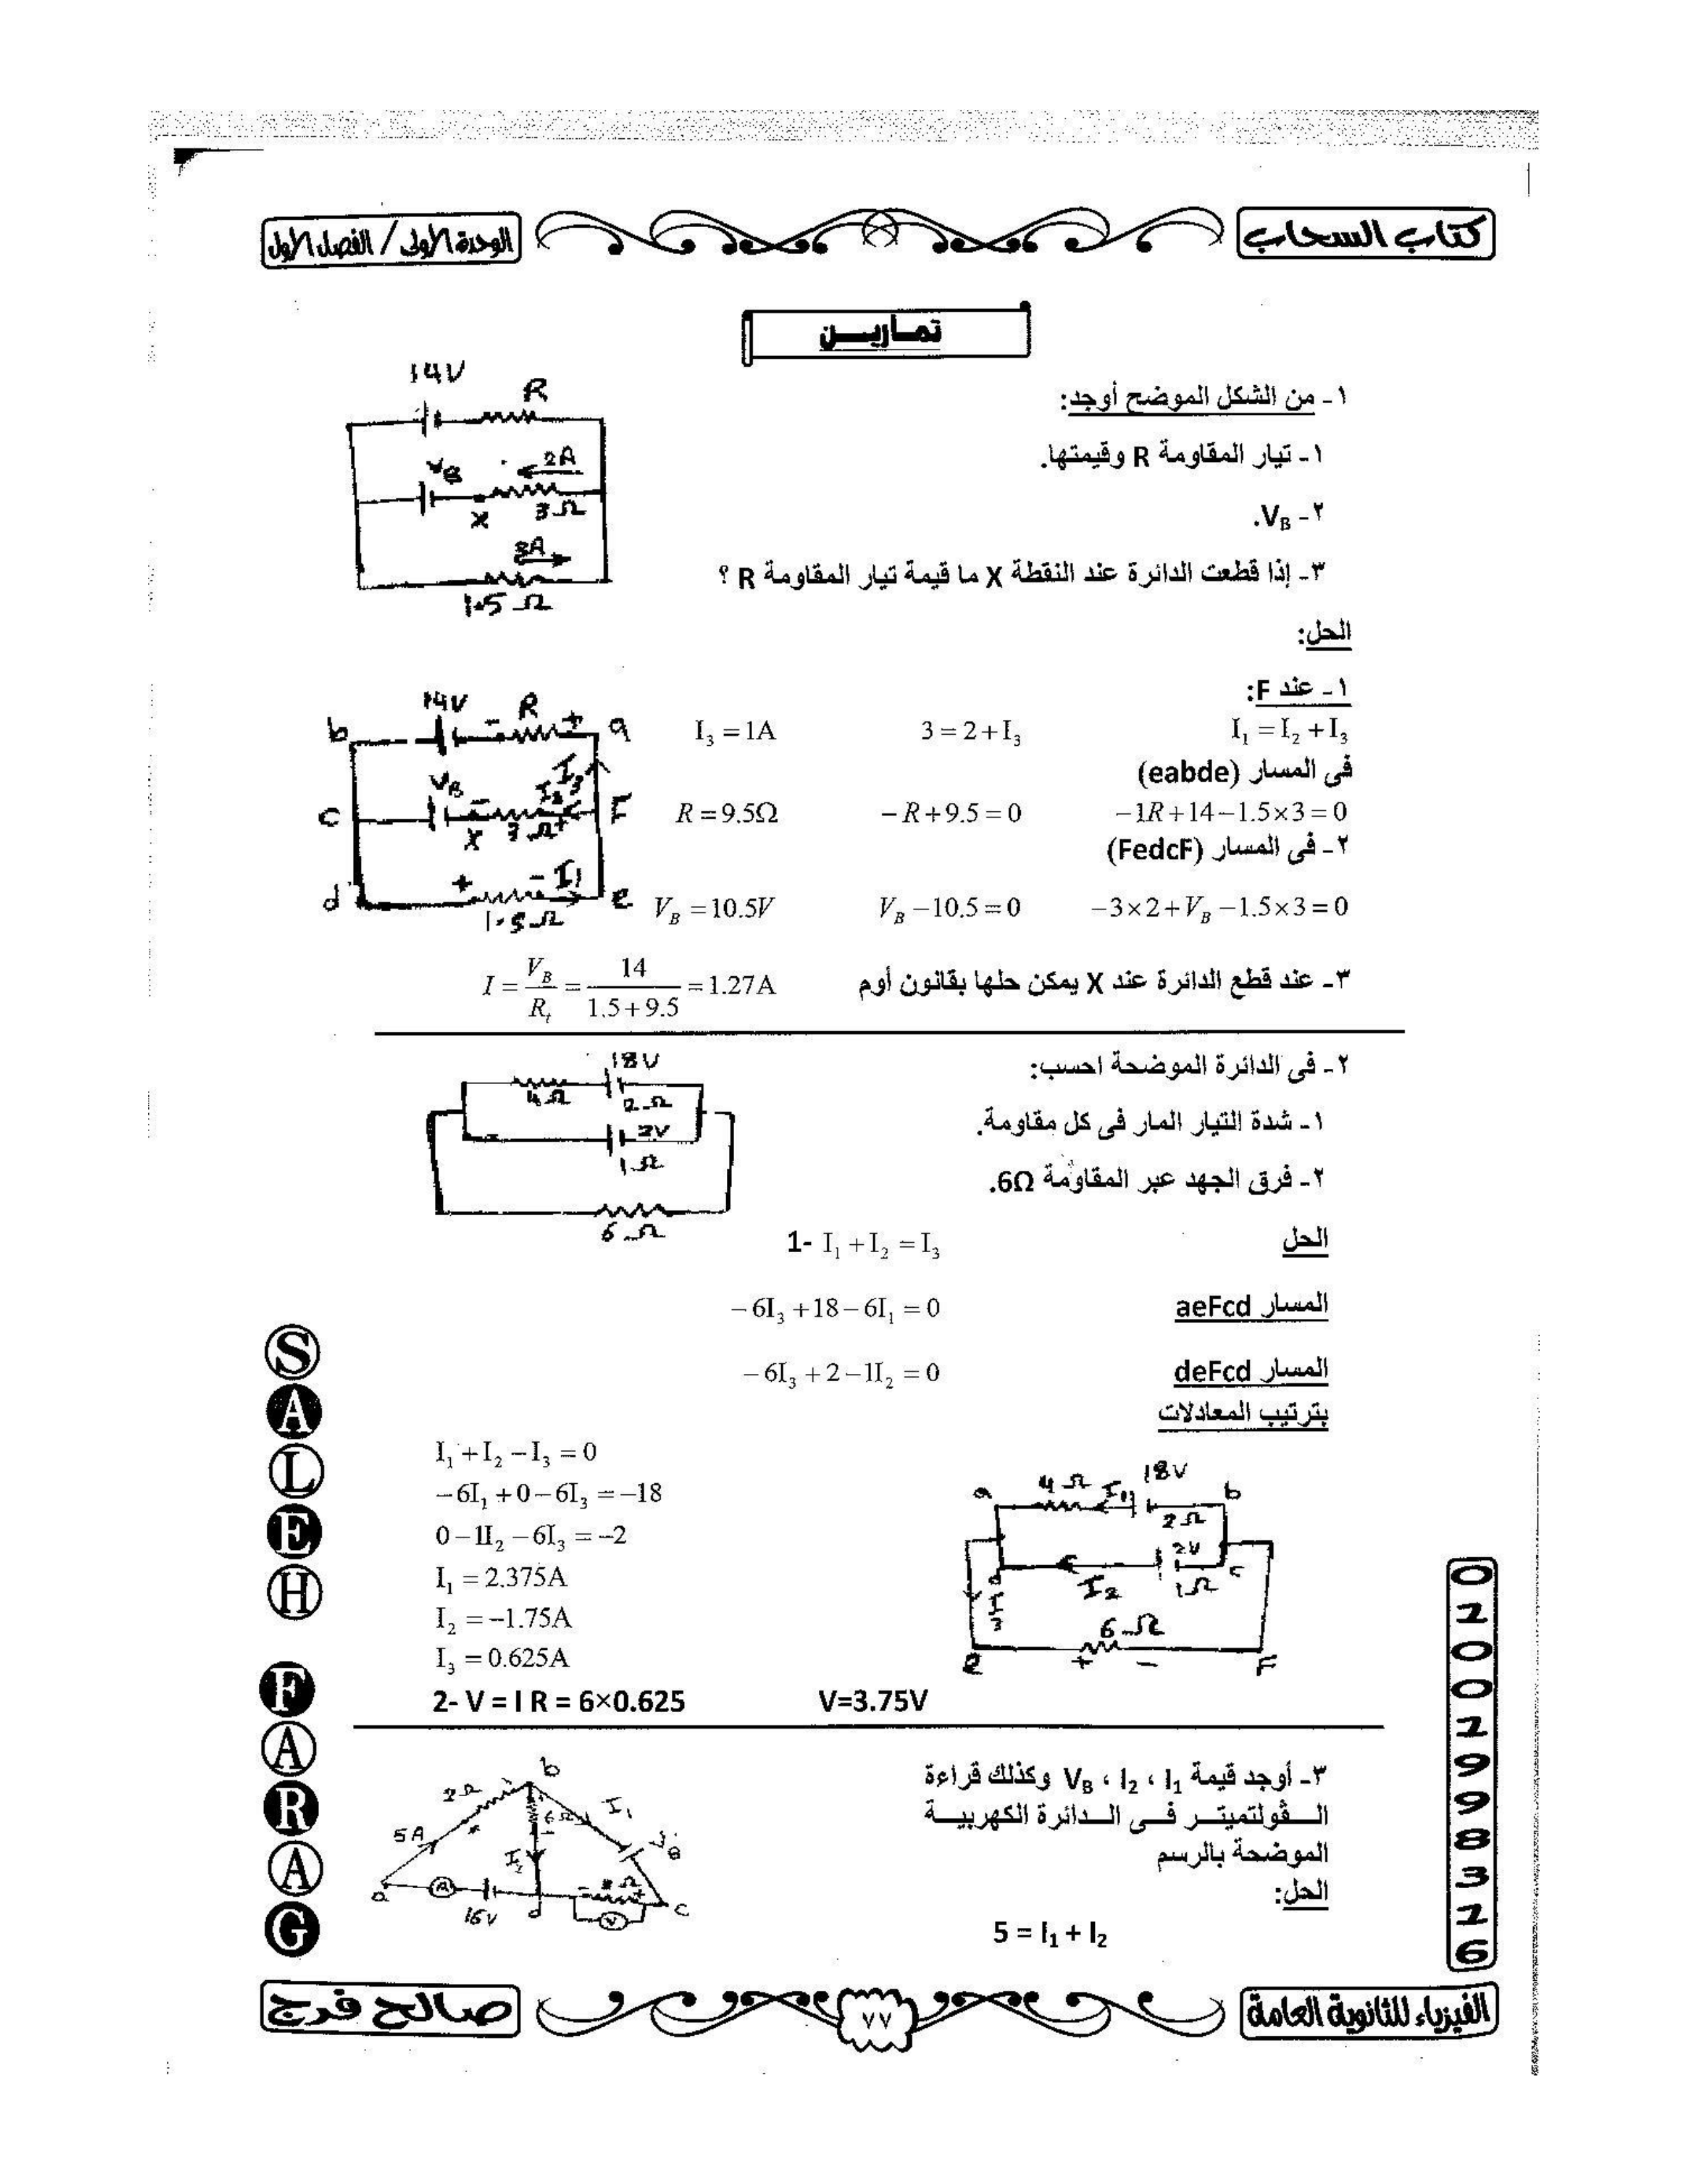 كتاب السحاب
الوحدة الأولى / الفصل الأول
تمارين
١- من الشكل الموضح أوجد:
١- تيار المقاومة R وقيمتها.
٢- V_B.
٣- إذا قطعت الدائرة عند النقطة X ما قيمة تيار المقاومة R ؟
14V
R
V_B
2A
X
3Ω
3A
1.5Ω
الحل:
١- عند F:
I₁ = I₂ + I₃
3 = 2 + I₃
I₃ = 1A
فى المسار (eabde)
−1R + 14 − 1.5 × 3 = 0
− R + 9.5 = 0
R = 9.5Ω
٢- فى المسار (FedcF)
−3 × 2 + V_B − 1.5 × 3 = 0
V_B − 10.5 = 0
V_B = 10.5V
14V
b
R
a
V_B
I₃
I₂
c
F
X
3Ω
I₁
d
e
1.5Ω
٣- عند قطع الدائرة عند X يمكن حلها بقانون أوم
I = V_B / R_t = 14 / (1.5 + 9.5) = 1.27A
٢- فى الدائرة الموضحة احسب:
١- شدة التيار المار فى كل مقاومة.
٢- فرق الجهد عبر المقاومة 6Ω.
18V
4Ω
2Ω
2V
1Ω
6Ω
الحل
1- I₁ + I₂ = I₃
المسار aeFcd
− 6I₃ + 18 − 6I₁ = 0
المسار deFcd
− 6I₃ + 2 − 1I₂ = 0
بترتيب المعادلات
I₁ + I₂ − I₃ = 0
−6I₁ + 0 − 6I₃ = −18
0 − 1I₂ − 6I₃ = −2
I₁ = 2.375A
I₂ = −1.75A
I₃ = 0.625A
a
4Ω
I₁
18V
b
2Ω
2V
c
I₂
1Ω
6Ω
e
+
−
F
2- V = I R = 6×0.625
V=3.75V
٣- أوجد قيمة I₁ ، I₂ ، V_B وكذلك قراءة
الڤولتميتر فى الدائرة الكهربية
الموضحة بالرسم
الحل:
5 = I₁ + I₂
b
2Ω
6Ω
I₁
5A
I₂
V_B
a
A
16V
d
V
c
SALEH FARAG
02002998326
الفيزياء للثانوية العامة
٧٧
صالح فرج